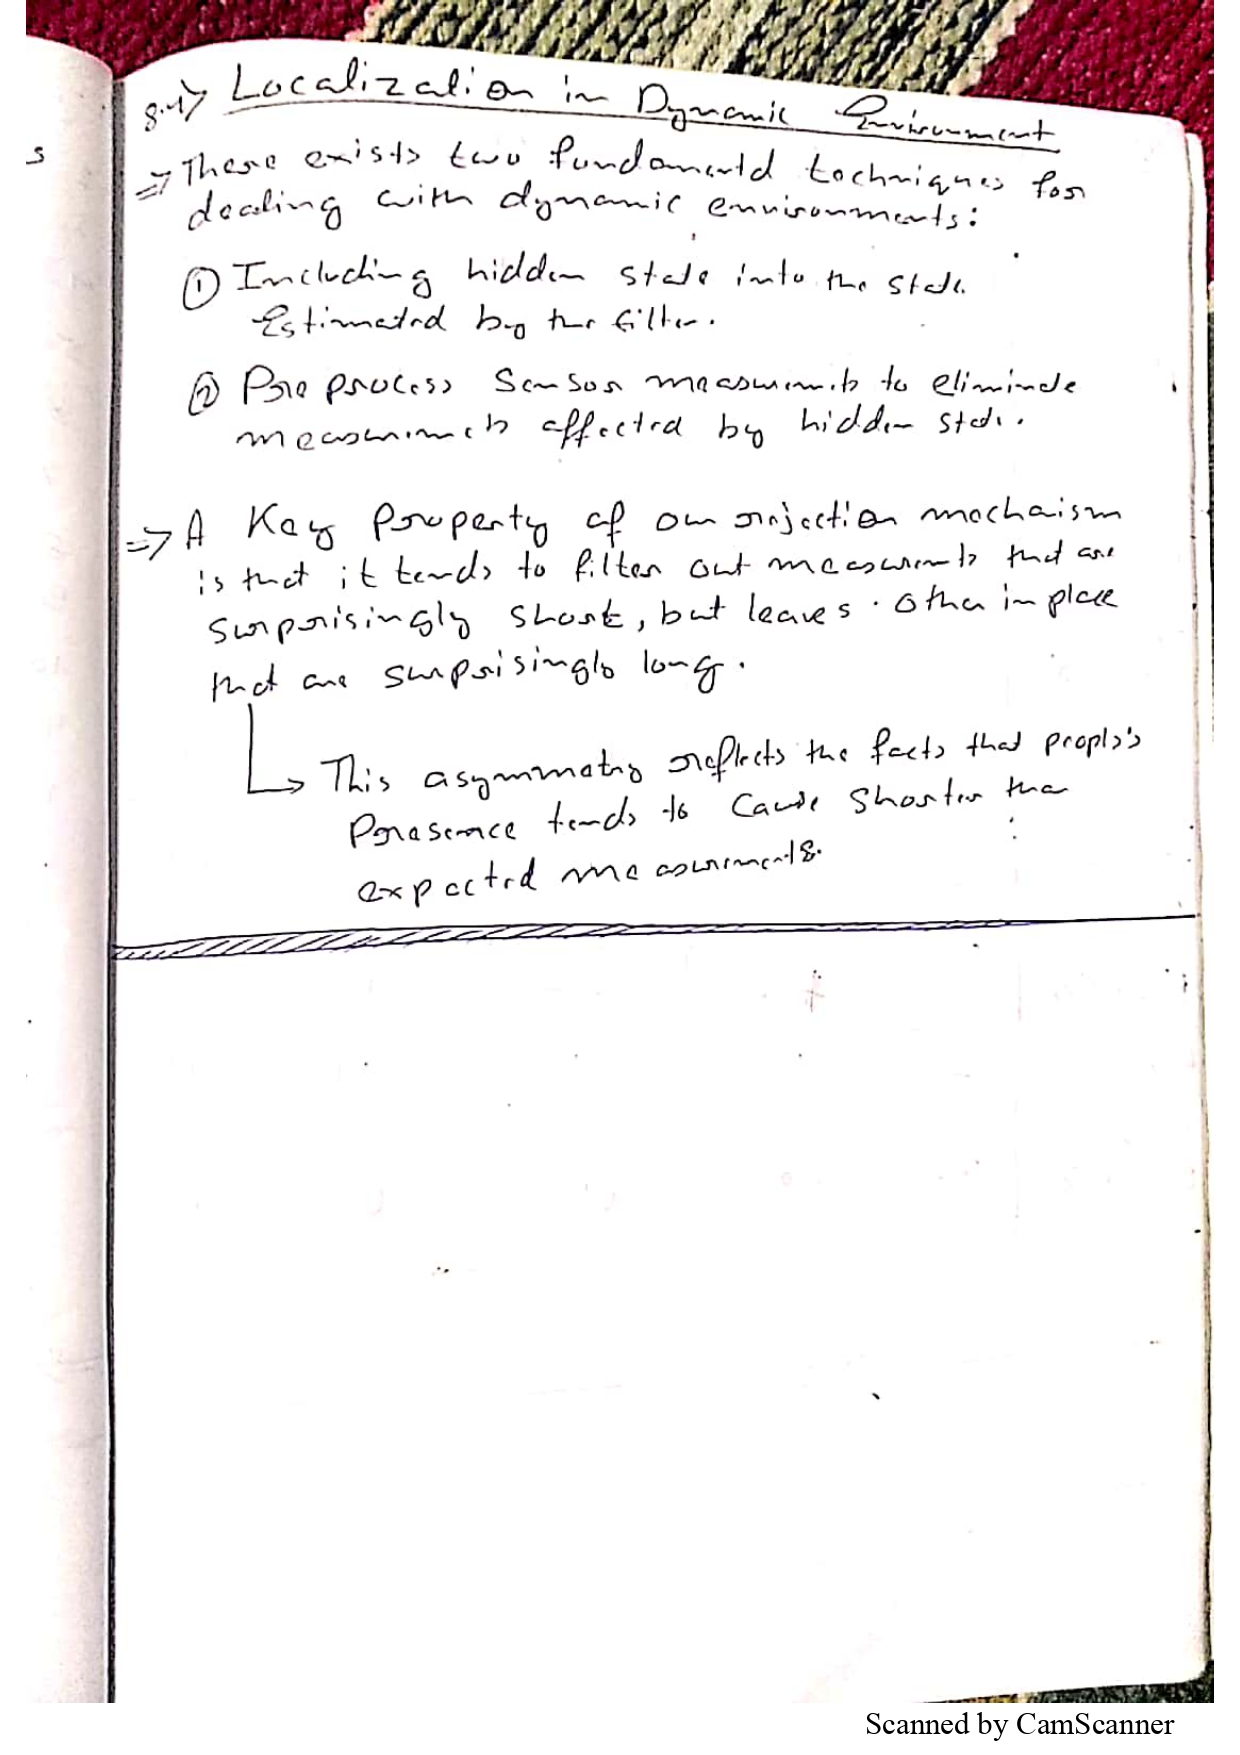 8.4> Localization in Dynamic Environment
=> There exists two fundamental techniques for
dealing with dynamic environments:
① Including hidden state into the state
Estimated by the filter.
② Pre process Sensor measurements to eliminate
measurements affected by hidden state.
=> A Key Property of our rejection mechaism
is that it tends to filter out measurements that are
surprisingly short, but leaves other in place
that are surprisingly long.
This asymmetry reflects the facts that people's
Presence tends to Cause Shorter than
expected measurements.
s
Scanned by CamScanner